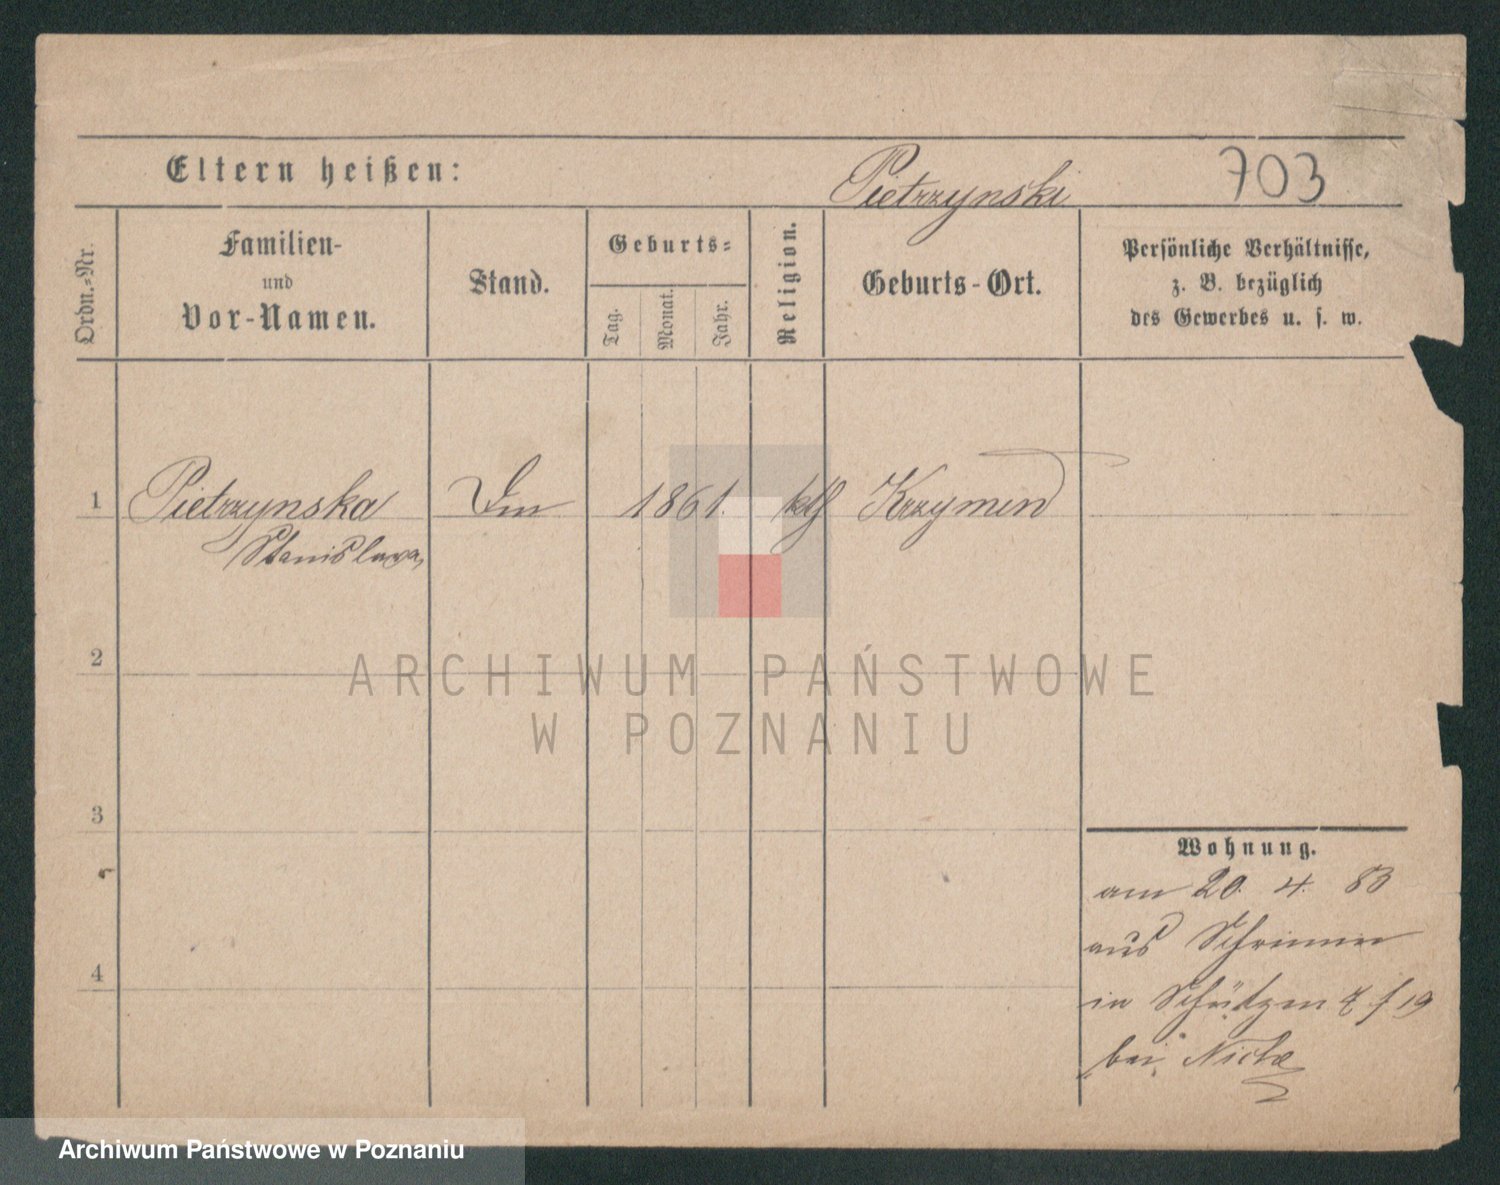 Eltern heißen:
Pietrzynski
703
Ordn.-Nr.
Familien-
und
Vor-Namen.
Stand.
Geburts-
Tag.
Monat.
Jahr.
Religion.
Geburts-Ort.
Persönliche Verhältnisse,
z. B. bezüglich
des Gewerbes u. s. w.
1
Pietrzynska
Stanislava
1861.
kth
2
ARCHIWUM PAŃSTWOWE
W POZNANIU
3
4
Wohnung.
am 20. 4. 83
aus Schrimm
in Schützen 19
bei
Archiwum Państwowe w Poznaniu